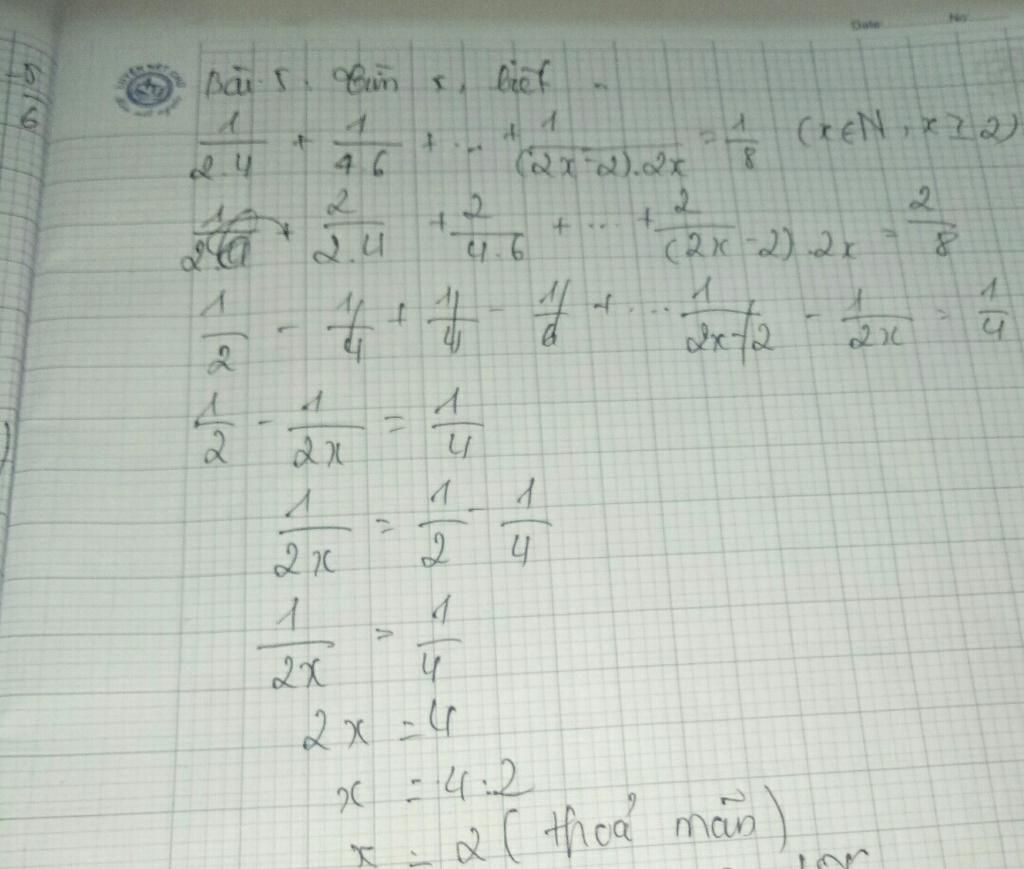 Date No
5
6
Bài 5. Tìm x, biết
1/2.4 + 1/4.6 + ... + 1/(2x-2).2x = 1/8 (x∈N, x≥2)
2/2.4 + 2/4.6 + ... + 2/(2x-2).2x = 2/8
1/2 - 1/4 + 1/4 - 1/6 + ... 1/2x-2 - 1/2x = 1/4
1/2 - 1/2x = 1/4
1/2x = 1/2 - 1/4
1/2x = 1/4
2x = 4
x = 4:2
x = 2 (thoả mãn)